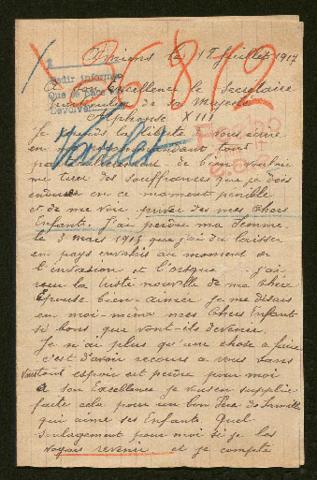 Amiens le 12 Juillet 1917
25812
Pedir informes
Que se
Devolver
A Son Excellence le Secrétaire
particulier de sa Majesté
Alphonse XIII
Je prends la liberté de vous écrire
en vous demandant tout
de bien vouloir
me tirer des souffrances que je dois
endurer en ce moment pénible
et de me voir privé des mes chers
Enfants. J'ai perdue ma femme
le 3 mars 1915 que j'ai du laisser
en pays envahis au moment de
l'invasion et lorsque j'ai
reçu la triste nouvelle de ma chère
Épouse bien-aimer je me disais
en moi-même mes chers Enfants
si bons que vont-ils devenir
Je n'ai plus qu'une chose a faire
c'est d'avoir recours a vous sans
tout espoir est perdue pour moi
a son Excellence je vous en supplie
faite cela pour un bon Père de famille
qui aime ses Enfants. Quel
soulagement pour moi si je les
voyais revenir et je compte